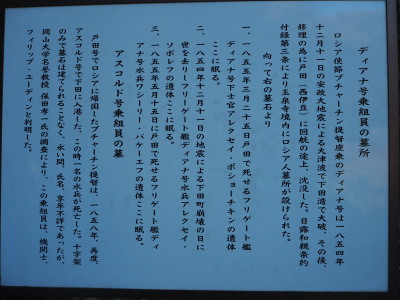 ディアナ号乗組員の墓所
ロシア使節プチャーチン提督座乗のディアナ号は一八五四年
十二月十一日の安政大地震による大津波で下田湾で大破、その後、
修理の為に戸田(西伊豆)に回航の途上、沈没した。日露和親条約
付録第三条により玉泉寺境内にロシア人墓所が設けられた。
向って右の墓石より
一、一八五五年三月二十五日戸田で死せるフリゲート艦
ディアナ号下士官アレクセイ・ポショーチキンの遺体
ここに眠る。
二、一八五四年十二月十一日の地震による下田町崩壊の日に
世を去りしフリゲート艦ディアナ号水兵アレクセイ・
ソボレフの遺体ここに眠る。
三、一八五五年五月十五日に戸田で死せるフリゲート艦ディ
アナ号水兵ワシーリー・バケーエフの遺体ここに眠る。
アスコルド号乗組員の墓
戸田号でロシアに帰国したプチャーチン提督は、一八五八年、再度、
アスコルド号で下田に入港した。この時一名の水兵が死亡した。十字架
のみで墓石は建てられることなく、永い間、氏名、享年不詳であったが、
岡山大学名誉教授 保田孝一氏の調査により、この乗組員は、機関士、
フィリップ・ユーディンと判明した。